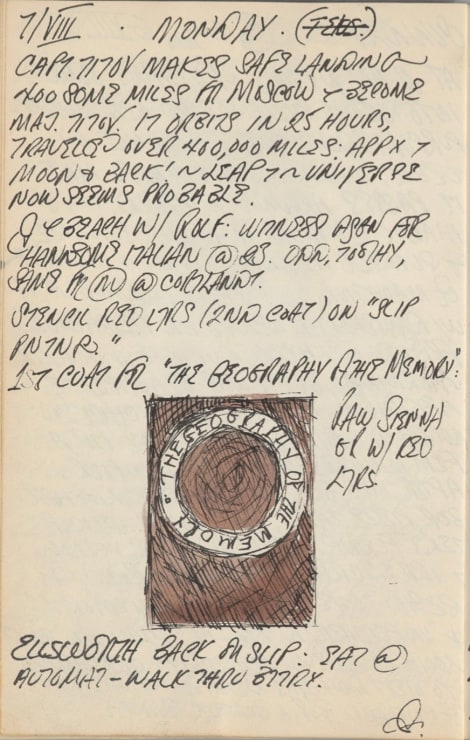 7/VIII · MONDAY. (TUES.)
CAPT. TITOV MAKES SAFE LANDING
400 SOME MILES FR MOSCOW & BECOME
MAJ. TITOV. 17 ORBITS IN 25 HOURS,
TRAVELED OVER 400,000 MILES: APPX T
MOON & BACK! ~ LEAP T ~ UNIVERSE
NOW SEEMS PROBABLE.
BEACH W/ ROLF: WITNESS AGAIN FOR
HANDSOME ITALIAN @ 28. ODD, TOOTHY,
SAME FR M @ CORTLANDT.
STENCIL RED LTRS (2ND COAT) ON "SLIP
PNTNR."
1ST COAT FR "THE GEOGRAPHY OF THE MEMORY":
RAW SIENNA
GR W/ RED
LTRS
THE GEOGRAPHY OF THE MEMORY
ELLSWORTH BACK ON SLIP: EAT @
AUTOMAT – WALK THRU BTTRY.